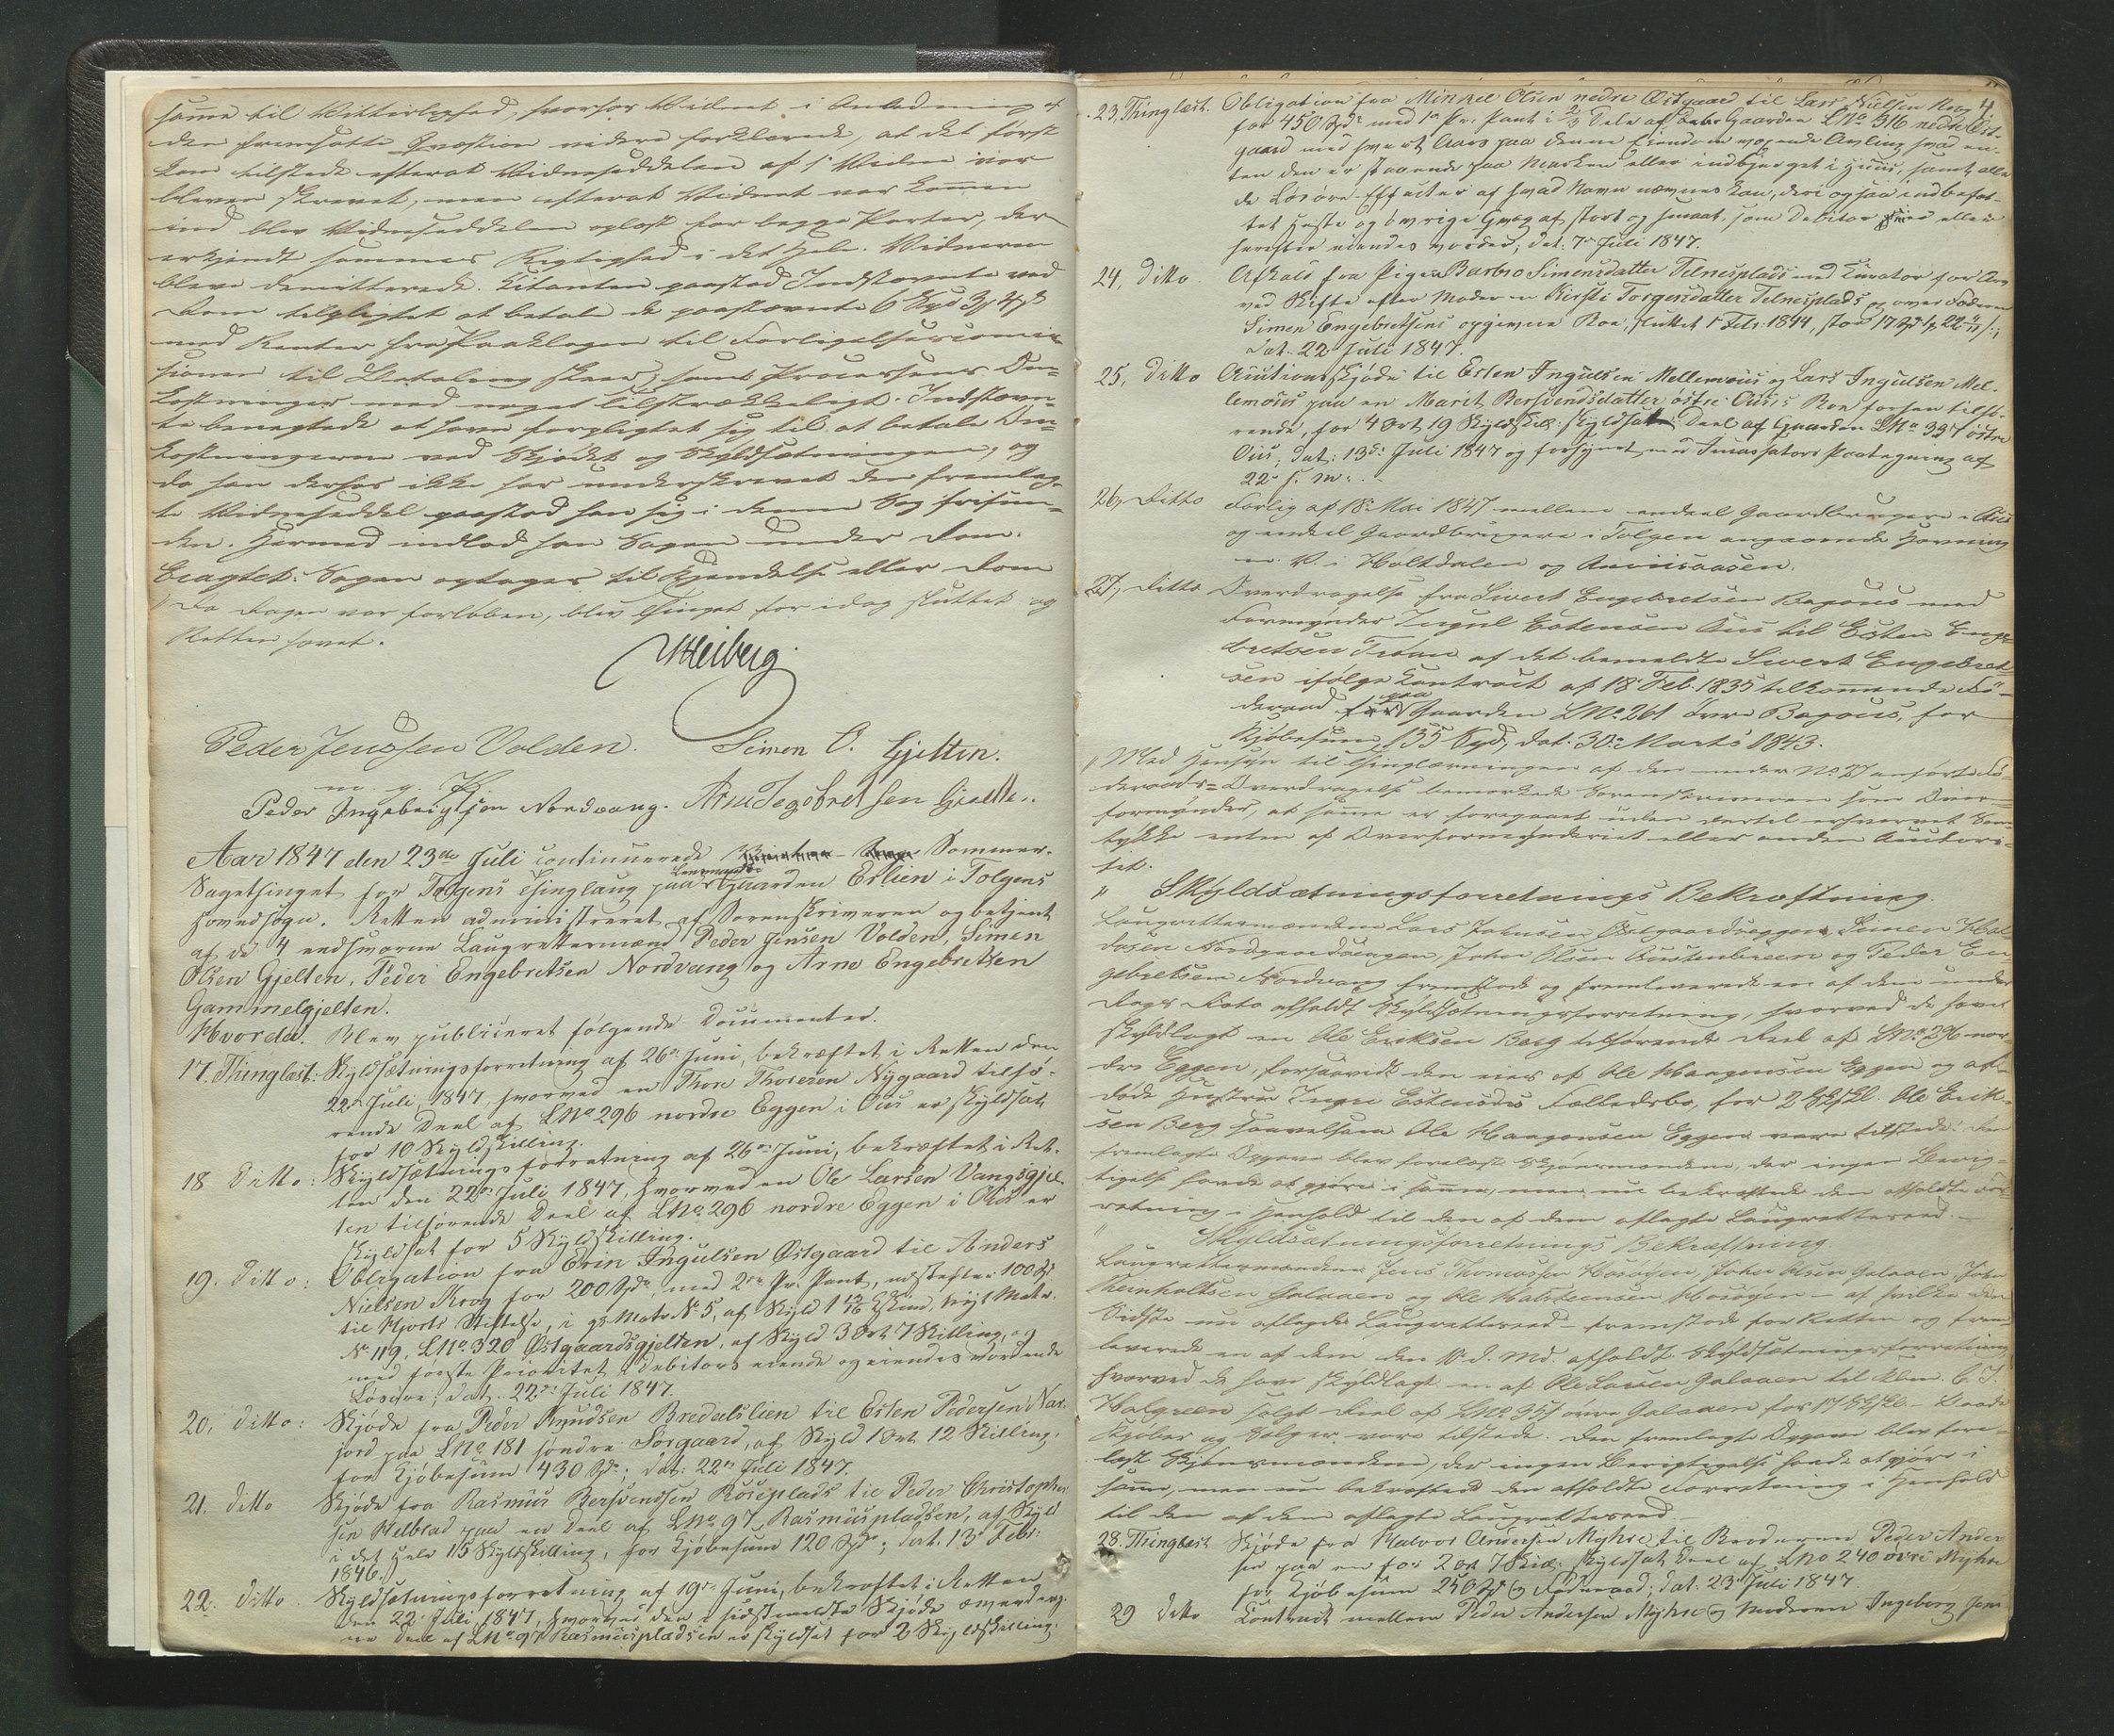 samme til Vitterlighed, hvorfor Vidnet i Anledning af
den fremsatte Qvæstion videre forklarede, at det først
kom tilstede efterat Vidneseddelen af 1 Vidne var
bleven skrevet, men efterat Vidnet var kommen
ind blev Vidneseddelen oplæst for begge Parter, der
erkjendte sammes Rigtighed i det Hele. Vidnerne
bleve demitterede. Citanten paastod Indstævnte ved
Dom tilpligtet at betale de paastævnte 6 Spd
med Renter fra Paaklagen til Forligelsescommis
sionen til Betaling skeer, samt Processens Om-
kostninger med noget tilstrækkeligt. Indstævn-
te benegtede at have forpligtet sig til at betale Om-
kostningerne ved Skjødet og Skyldsætningen, og
da han derfor ikke har underskrevet den fremlag-
te Vidneseddel paastod han sig i denne Sag frifun-
den. Hermed indlod han Sagen under Dom.
Eragtet. Sagen optages til Kjendelse eller Dom
Da Dagen var forløben, blev Thinget for idag sluttet og
Retten hævet.
Heiberg
Peder Jenssen Volden. Simen O. Gjelten.
m. g. P.
Peder Ingebrigtsen Nordvang. Arne Ingebretsen Gjelte..
Aar 1847 den 23de Juli continuerede Sommer-
Sagethinget for Tolgens Thinglaug paa Lensmands Gaarden Erlien i Tolgens
Hovedsogn. Retten administreret af Sorenskriveren og betjent
af de 4 eedsvorne Laugrettemænd Peder Jensen Volden, Simen
Olsen Gjelten, Peder Engebretsen Nordvang og Arne Engebretsen
Gammelgjelten.
Hvorda. Blev publiceret følgende Documenter.
17. Thinglæst: Skyldsætningsforretning af 26de Juni, bekræftet i Retten den
22de Juli 1847, hvorved en Thore Thoresen Nygaard tilhø-
rende Deel af LNo 296 nordre Eggen i Ous er skyldsat
for 10 Skyldskilling.
18 Ditto: Skyldsætningsforretning af 26de Juni, bekræftet i Ret-
ten den 22de Juli 1847, hvorved en Ole Larsen Vangsgjel-
ten tilhørende Deel af LNo 296 nordre Eggen i Ous er
skyldsat for 5 Skyldskilling.
19. Ditto: Obligation fra Erin Ingulsen Østgaard til Anders
Nielsen Krog for 200 Spd, med 2den Pr. Pant, næstefter 100 Spd
til Hjorts Stiftelse, i gl Matr No 5, af Skyld nyt Matr.
No 119, LNo 320 Østgaardsgjelten, af Skyld 3 Ort 7 Skilling, og
med første Prioritet i Debitors eiende og eiendes vordende
Løsøre; dat. 22de Juli 1847.
20, Ditto: Skjøde fra Peder Knudsen Bredalslien til Esten Pedersen Nar-
jord paa LNo 181 søndre Sørgaard, af Skyld 1 Ort 12 Skilling,
for Kjøbesum 430 Spd; dat. 22de Juli 1847.
21. Ditto Skjøde fra Rasmus Bersvendsen Rosesplads til Peder Christopher
sen Melbrad paa en Deel af LNo 97, Rasmuspladsen, af Skyld
i det Hele 15 Skyldskilling, for Kjøbesum 120 Spd; dat. 13de Febr.
1846.
22. Ditto: Skyldsætningsforretning af 19de Juni, bekræftet i Retten
den 22de Juli 1847, hvorved den i sidstmeldte Skjøde omhandle-
ne Deel af LNo 97 Rasmuspladsen er skyldsat for 2 Skyldskilling.
4
23. Thinglæst. Obligation fra Mikkel Olsen nedre Østgaard til Lars Nielsen Krog
for 450 Spd med 1ste Pr. Pant i 2/3 Dele af Gaarden LNo 316 nedre Øst-
gaard med hvert Aars paa denne Eiendom voxende Avling hvad en-
ten den er staaende paa Marken eller indbjerget i Huus, samt alle
de Løsøre-Effecter af hvad Navn nævnes kan, deri ogsaa indbefat-
tet Heste og øvrige Qvæg af stort og smaat, som Debitor eier eller
herefter eiendes vorder; dat. 7de Juli 1847.
24, Ditto. Afkald fra Pigen Barbro Simensdatter Telnesplads med Curator for Arv
ved Skifte efter Moderen Kirsti Torgersdatter Telnesplads og over Faderen
Simen Engebretsens opgivne Boe, sluttet 1 Febr. 1844, stor 17 Spd
dat. 22de Juli 1847.
25, Ditto Auctionsskjøde til Esten Ingulsen Mellemous og Lars Ingulsen Mel-
lemous paa en Marit Bersvendsdatter østre Ousis Boe forhen tilhø-
rende, for 4 Ort 19 Skyldskill. skyldsatte Deel af Gaarden LNo 337 østre
Ous, dat: 13de Juli 1847 og forsynet med Incassators Paategning af
22de s. M.
26, Ditto Forlig af 18de Mai 1847 mellem endeel Gaardbrugere i Ous
og endeel Gaardbrugere i Tolgen angaaende Havning
m. V. i Holtdalen og
27, Ditto Overdragelse fra Sivert Engebretsen Bagous med
Formynder Ingul Estensen Ous til Esten Enge-
bretsen Trøen af det bemeldte Sivert Engebret-
sen ifølge Contract af 18de Feb. 1835 tilkommende Fø-
deraad paa Gaarden LNo 261 øvre Bagous, for
Kjøbesum 155 Spd, dat. 30te Marts 1843.
Med Hensyn til Thinglæsningen af den under No 27 anførte Fø-
deraads-Overdragelse bemærkede Sorenskriveren som Over-
formynder, at samme er foregaaet uden dertil erhvervet Sam-
tykke enten af Overformynderiet eller anden Autori-
tet.
" Skyldsætningsforretnings Bekræftning.
Laugrettemændene Lars Johnsen Østgaardseggen, Simen Hal-
dosen Nordgaardsengen, John Olsen Oustenbreen og Peder En-
gebretsen Nordvang fremstode og fremleverede en af dem under
Dags Dato afholdt Skyldsætningsforretning, hvorved de have
skyldlagt en Ole Eriksen Berg tilhørende Deel af LNo 296 nor-
dre Eggen, forsaavidt den eies af Ole Haagensen Eggen og af-
døde Hustru Ingri Estensdrs Fælledsbo, for 2 SkylSkl. Ole Erik-
sen Berg saavelsom Ole Haagensen Eggen vare tilstede. Den
fremlagte Opgave blev forelæst Skjønsmændene, der ingen Berig-
tigelse havde at gjøre i samme, men nu bekræftede den afholdte For-
retning i Henhold til den af dem aflagte Laugretteseed.
" Skyldsætningsforretnings Bekræftning.
Laugrettemændene Jens Thomassen Hosøyen, John Olsen Galaaen, John
Reinholtsen Galaaen og Ole Halstensen Hosøyen - af hvilke den
Sidste nu aflagde Laugretteseed - fremstode for Retten og frem-
leverede en af dem den 10 d. Md. afholdt Skyldsætningsforretning
hvorved de have skyldlagt en af Ole Larsen Galaaen til Klem. C. J.
Halgreen solgt Deel af LNo 351 øvre Galaaen for 17 SkylSkl. Baade
Kjøber og Sælger vare tilstede. Den fremlagte Opgave blev fore-
læst Skjønsmændene, der ingen Berigtigelse havde at gjøre i
samme, men nu bekræftede den afholdte Forretning i Henhold
til den af dem aflagte Laugretteseed.
28. Thinglæst Skjøde fra Halvor Andersen Myhre til Broderen Peder Ander
sen paa en for 2 Ort 7 Skill. skyldsat Deel af LNo 240 øvre Myhre
for Kjøbesum 250 Spd og Føderaad; dat. 23de Juli 1847.
29 Ditto Contract mellem Peder Andersen Myhre og Moderen Ingeborg Jens